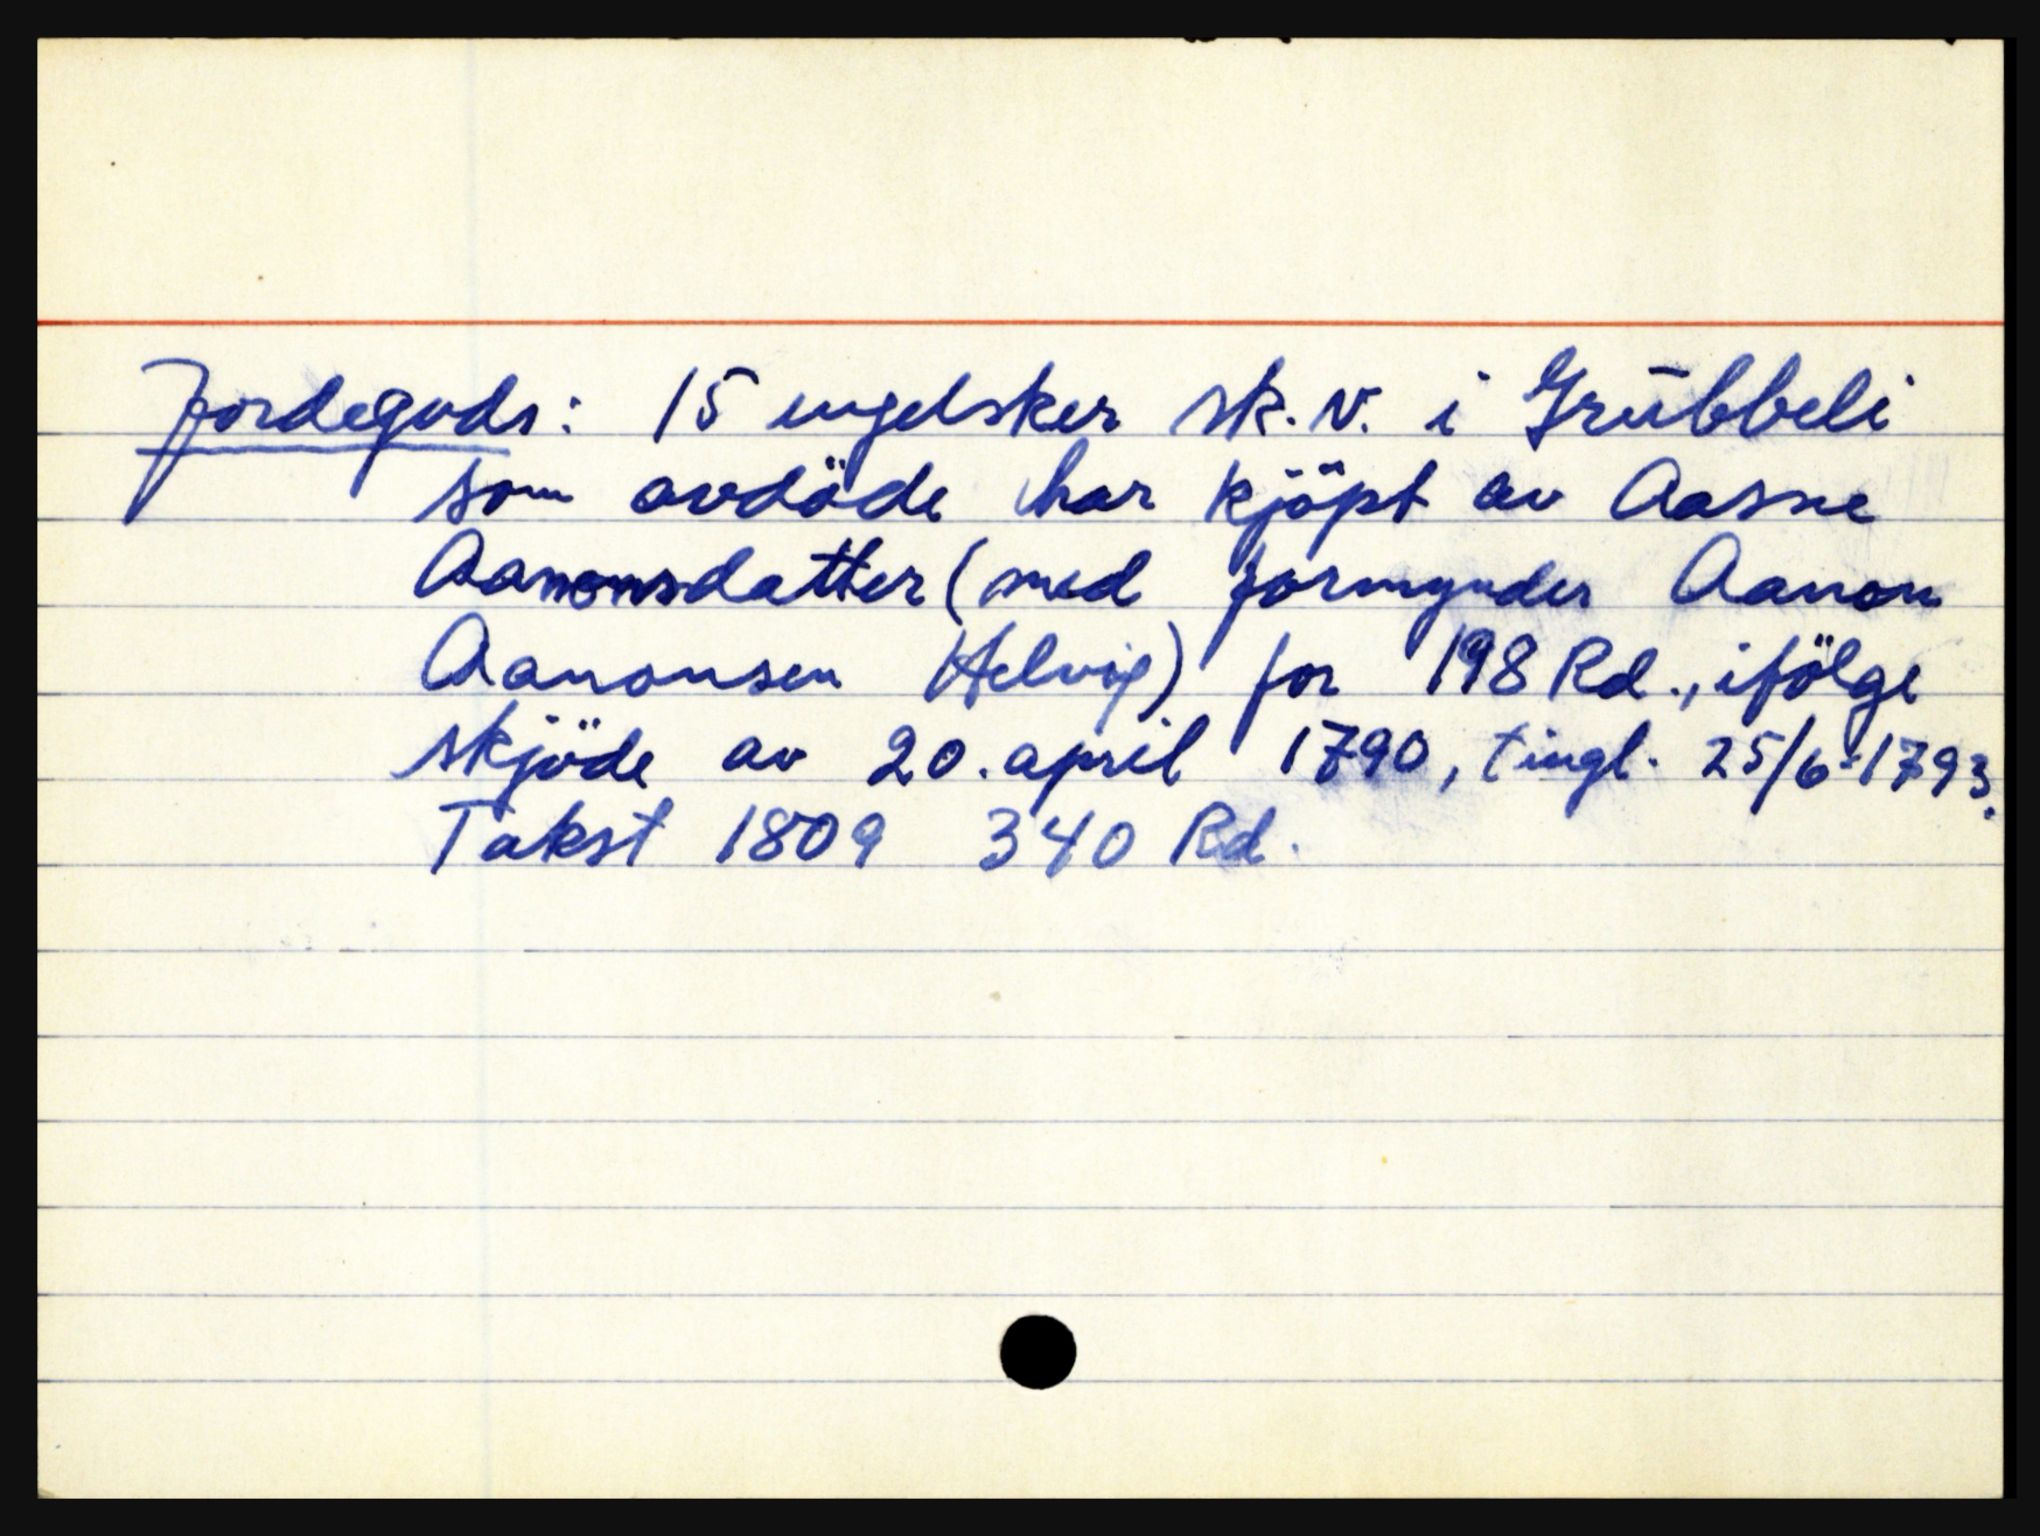 Jordegods: 15 engelsker sk. v. i Grübbeli
som avdöde har kjöpt av Aasne
Aanonsdatter (med formynder Aanon
Aanonsen Helvig) for 198 Rd., ifölge
skjöde av 20. april 1790, tingl. 25/6-1793.
Takst 1809 340 Rd.